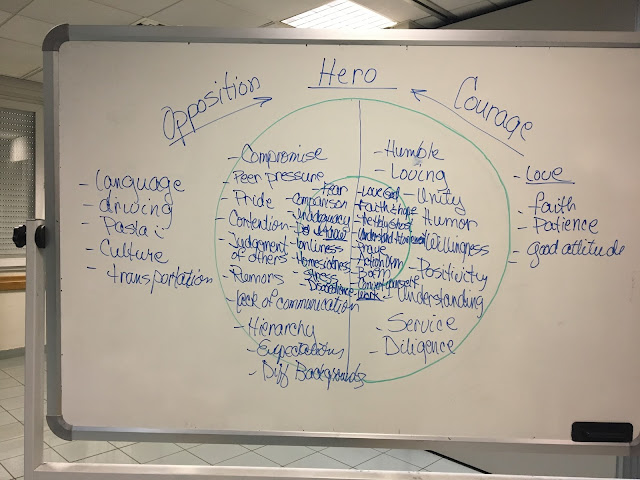 Hero
Opposition
Courage
- Language
- driving
- Pasta :
- Culture
- transportation
- Compromise
- Peer pressure
- Pride
- Contention
- Judgement
of others
- Rumors
- Lack of communication
- Hierarchy
- Expectations
- Diff Backgrounds
Fear
- Comparison
- Inadequacy
- lonliness
- Homesickness
- Stress
- Disobedience
- Love God
- Faith & hope
- Pray
- BofM
- work
- Humble
- Loving
- Unity
- Humor
- Willingness
- Positivity
- Understanding
- Service
- Diligence
- Love
- faith
- Patience
- good attitude